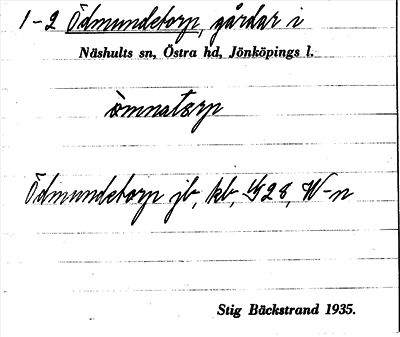 1-2 Ödmundetorp, gårdar i
Näshults sn, Östra hd, Jönköpings l.
òmnatorp
Ödmundetorp jb, kb, 28, W-n
Stig Bäckstrand 1935.